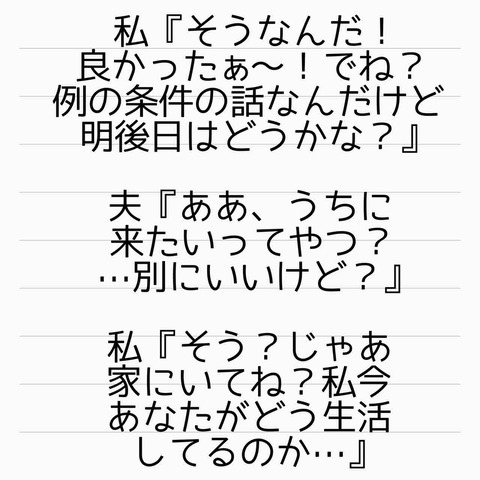 私『そうなんだ！
良かったぁ〜！でね？
例の条件の話なんだけど
明後日はどうかな？』
夫『ああ、うちに
来たいってやつ？
…別にいいけど？』
私『そう？じゃあ
家にいてね？私今
あなたがどう生活
してるのか…』